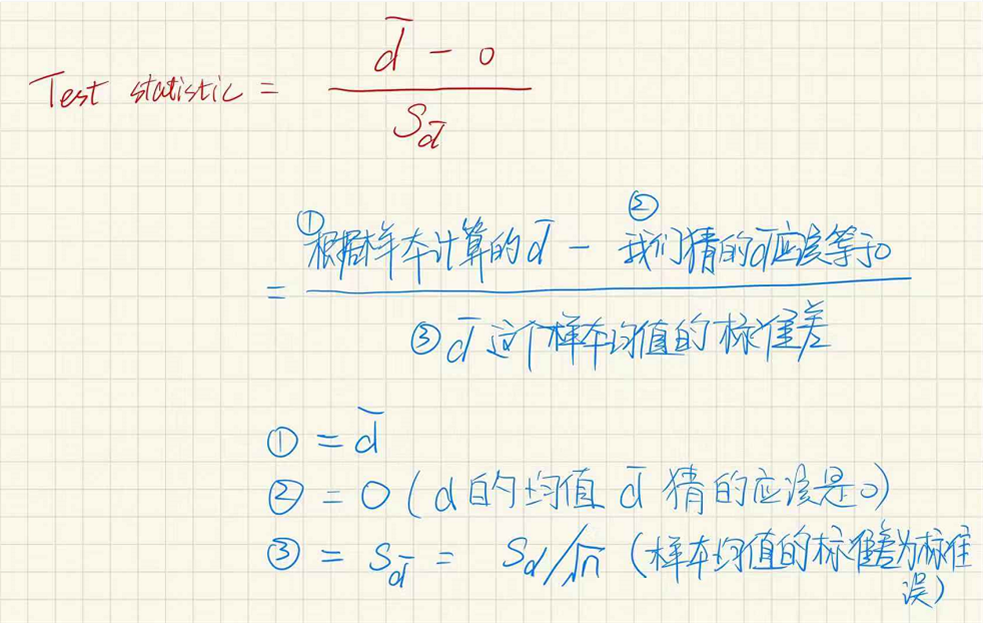 Test statistic = (d̄ - 0) / S_d̄
= (①根据样本计算的d̄ - ②我们猜的d̄应该等于0) / (③d̄这个样本均值的标准差)
① = d̄
② = 0 (d的均值 d̄ 猜的应该是0)
③ = S_d̄ = S_d/√n (样本均值的标准差为标准
误)